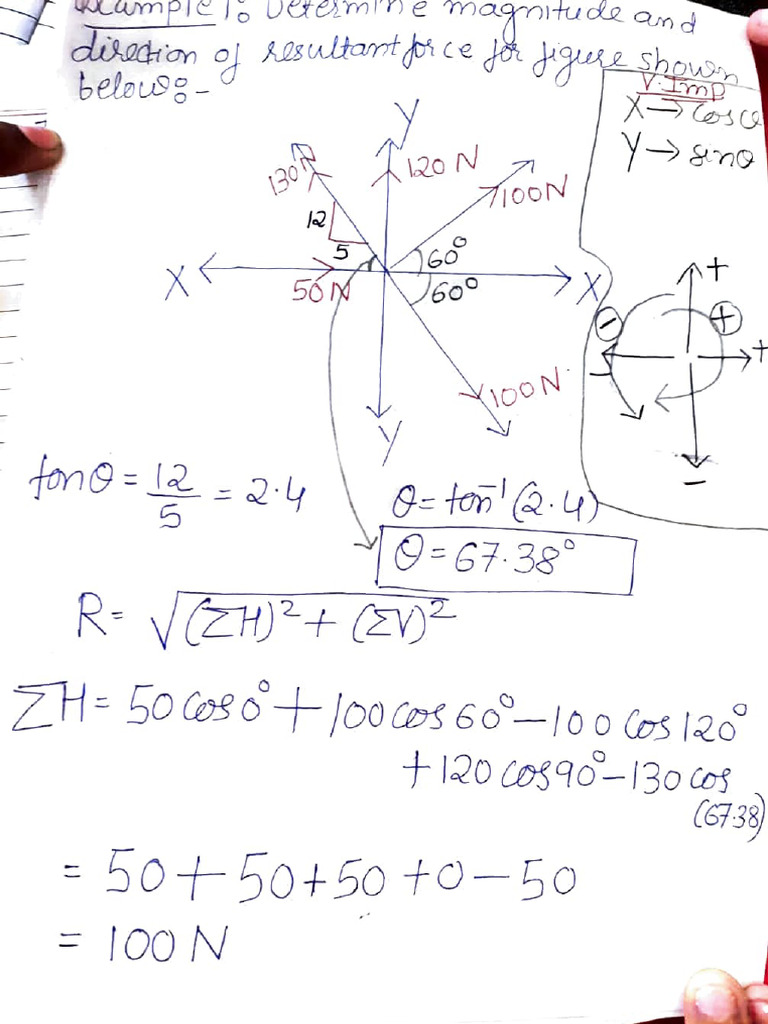 Example 1: Determine magnitude and
direction of resultant force for figure shown
below:-
V.Imp
X → cosθ
Y → sinθ
Y
130N
120 N
100N
12
5
60°
X
50 N
60°
X
100N
Y
+
- +
- +
-
tanθ = 12/5 = 2.4
θ = tan⁻¹(2.4)
θ = 67.38°
R = √(ΣH)² + (ΣV)²
ΣH = 50 cos 0° + 100 cos 60° - 100 cos 120°
+ 120 cos 90° - 130 cos
(67.38)
= 50 + 50 + 50 + 0 - 50
= 100 N